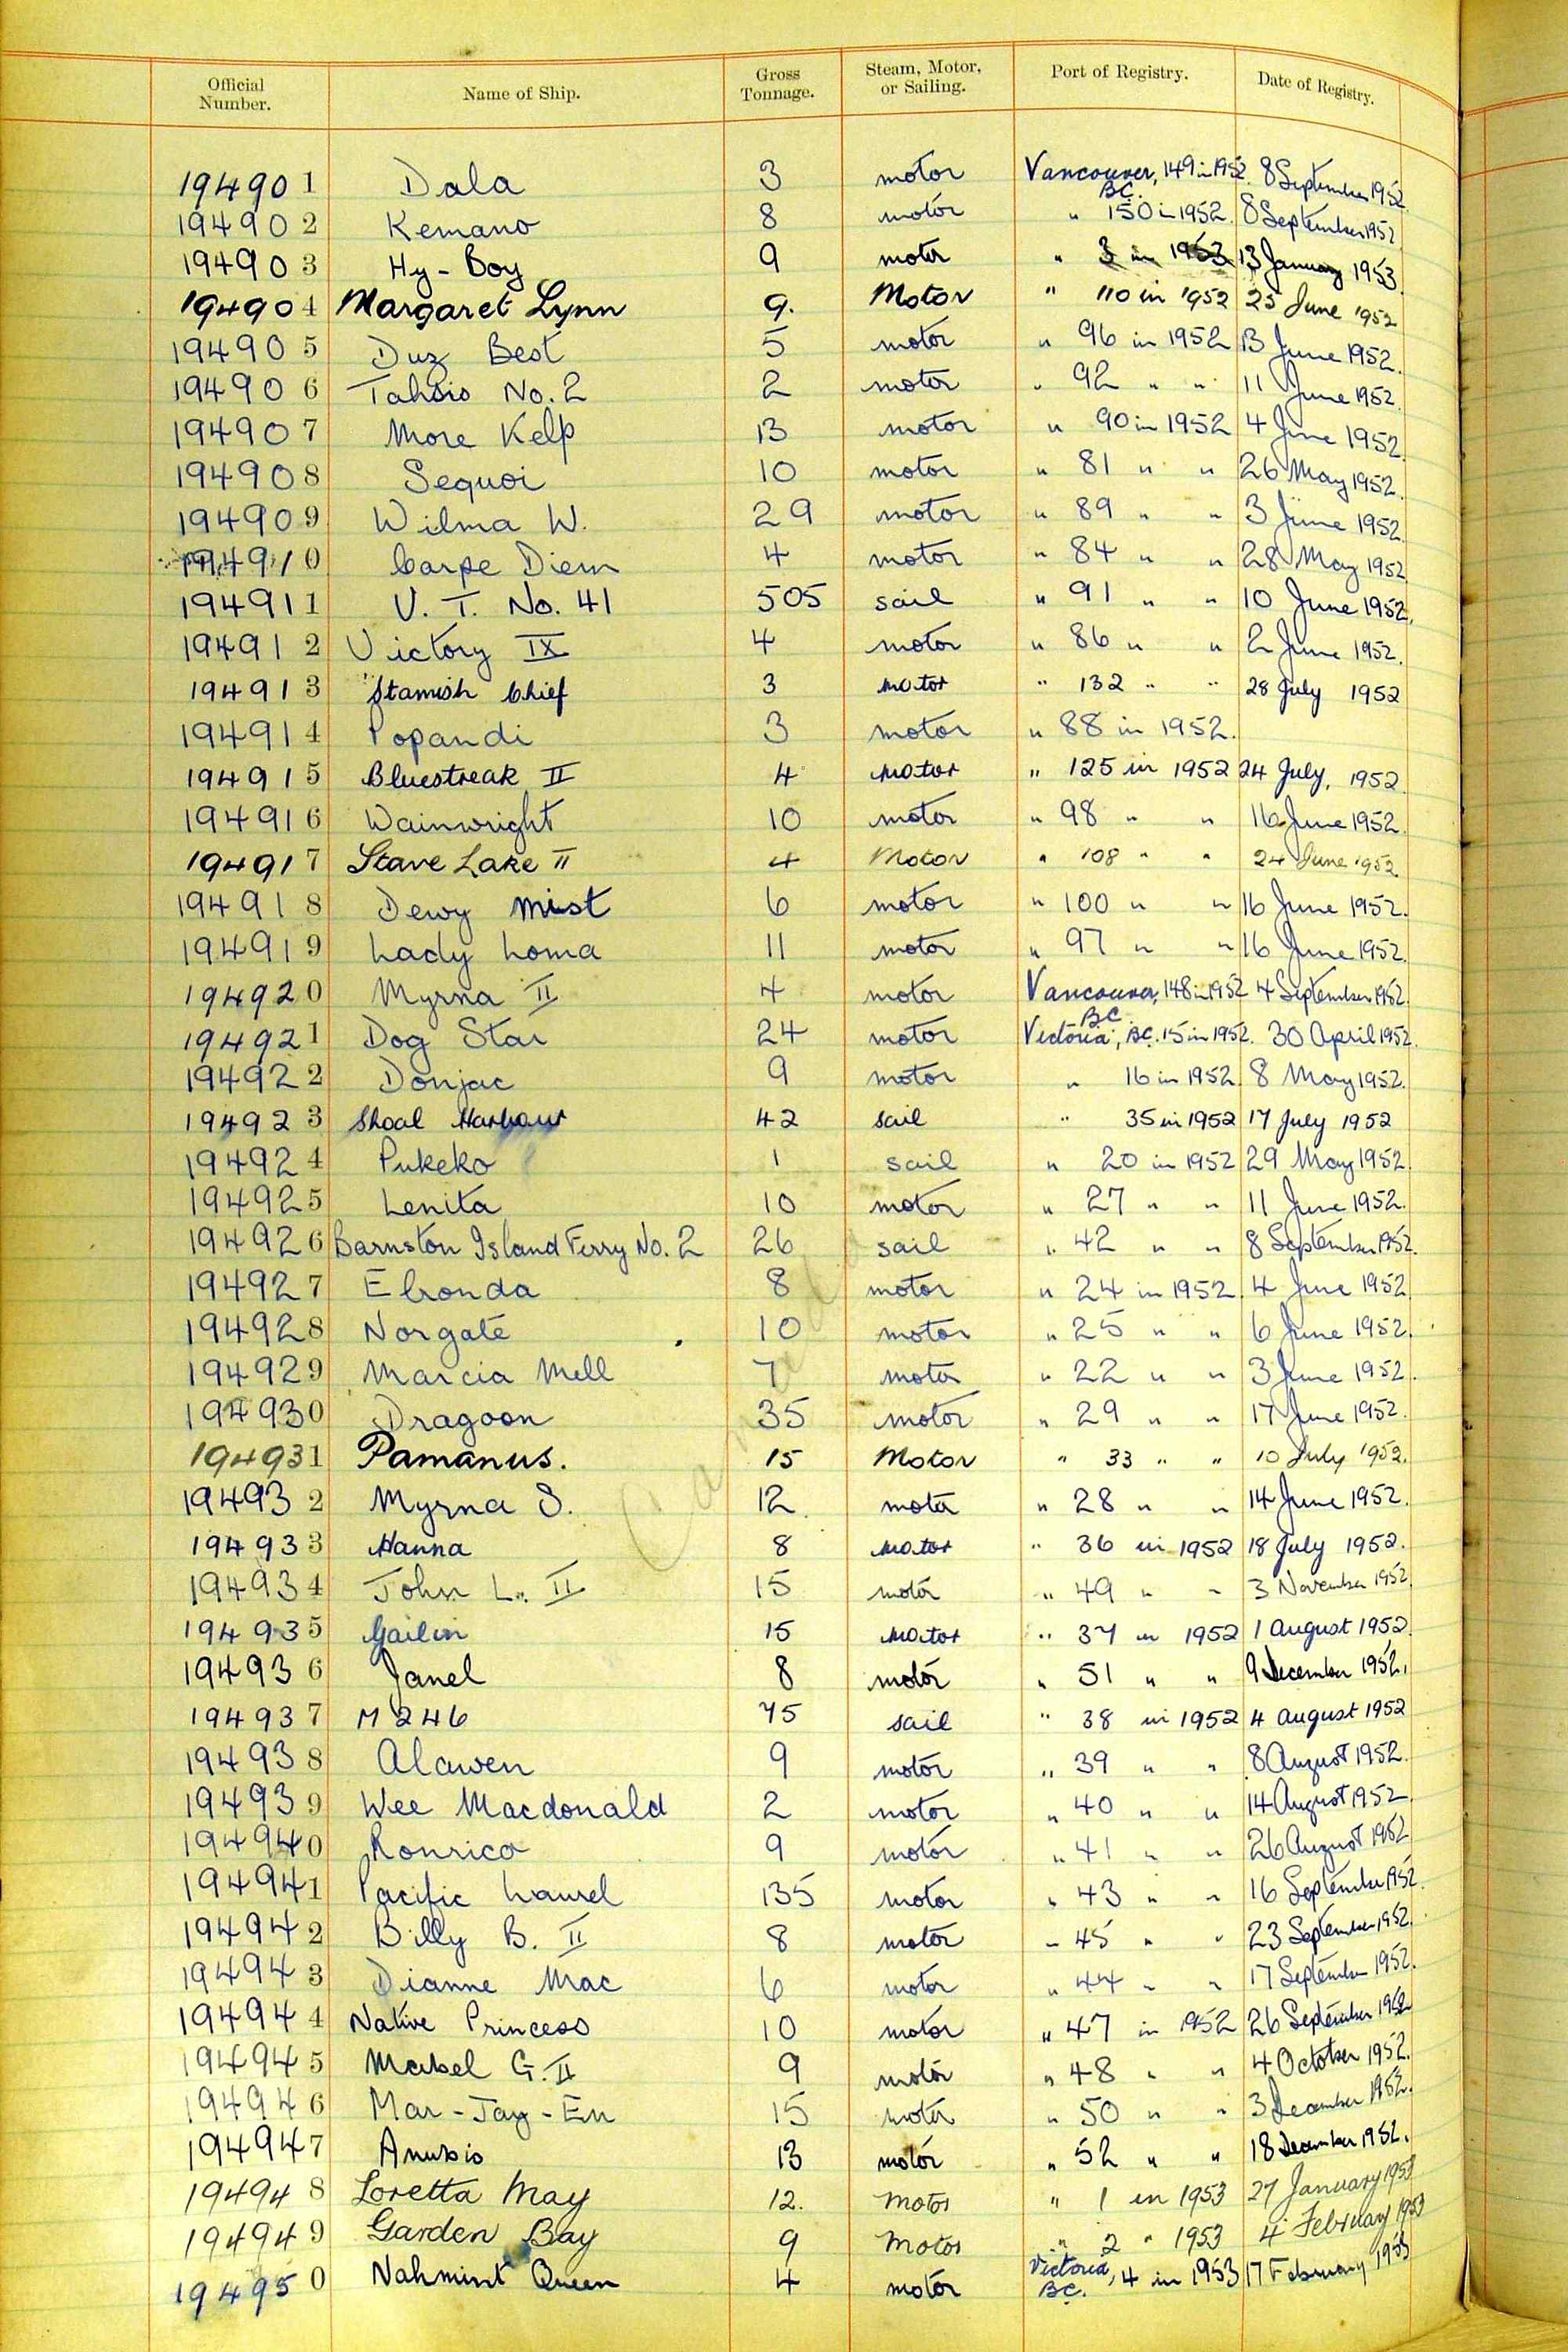 Official Number. Name of Ship. Gross Tonnage. Steam, Motor, or Sailing. Port of Registry. Date of Registry.
194901 Dala 3 motor Vancouver, BC. 149 in 1952. 8 September 1952
194902 Kemano 8 motor " 150 in 1952. 8 September 1952
194903 Hy-Boy 9 motor " 3 in 1953 13 January 1953
194904 Margaret Lynn 9. Motor " 110 in 1952 25 June 1952
194905 Duz Best 5 motor " 96 in 1952 13 June 1952.
194906 Tahsis No. 2 2 motor " 92 " " 11 June 1952.
194907 More Kelp 13 motor " 90 in 1952 4 June 1952
194908 Sequoi 10 motor " 81 " " 26 May 1952.
194909 Wilma W. 29 motor " 89 " " 3 June 1952.
194910 Carpe Diem 4 motor " 84 " " 28 May 1952
194911 V. T. No. 41 505 sail " 91 " " 10 June 1952.
194912 Victory IX 4 motor " 86 " " 2 June 1952.
194913 Stamish Chief 3 motor " 132 " " 28 July 1952
194914 Popandi 3 motor " 88 in 1952.
194915 Bluestreak II 4 motor " 125 in 1952 24 July, 1952
194916 Wainwright 10 motor " 98 " " 16 June 1952.
194917 Stave Lake II 4 Motor " 108 " " 24 June 1952
194918 Dewy Mist 6 motor " 100 " " 16 June 1952.
194919 Lady Loma 11 motor " 97 " " 16 June 1952.
194920 Myrna II 4 motor Vancouver, BC 148 in 1952 4 September 1952.
194921 Dog Star 24 motor Victoria, BC. 15 in 1952. 30 April 1952.
194922 Donjac 9 motor " 16 in 1952. 8 May 1952.
194923 Shoal Harbour 42 sail " 35 in 1952 17 July 1952
194924 Pukeko 1 sail " 20 in 1952 29 May 1952
194925 Lenita 10 motor " 27 " " 11 June 1952.
194926 Barnston Island Ferry No. 2 26 sail " 42 " " 8 September 1952.
194927 Elronda 8 motor " 24 in 1952. 4 June 1952
194928 Norgate 10 motor " 25 " " 6 June 1952.
194929 Marcia Mell 7 motor " 22 " " 3 June 1952.
194930 Dragoon 35 motor " 29 " " 17 June 1952.
194931 Pamanus. 15 Motor " 33 " " 10 July 1952.
194932 Myrna S. 12 motor " 28 " " 14 June 1952.
194933 Hanna 8 motor " 36 in 1952 18 July 1952.
194934 John L. II 15 motor " 49 " " 3 November 1952
194935 Gailin 15 motor " 37 in 1952 1 August 1952.
194936 Janel 8 motor " 51 " " 9 December 1952.
194937 M 246 75 sail " 38 in 1952 4 August 1952
194938 Alawen 9 motor " 39 " " 8 August 1952.
194939 Wee Macdonald 2 motor " 40 " " 14 August 1952
194940 Ronrico 9 motor " 41 " " 26 August 1952
194941 Pacific Laurel 135 motor " 43 " " 16 September 1952.
194942 Billy B. II 8 motor " 45 " " 23 September 1952.
194943 Dianne Mac 6 motor " 44 " " 17 September 1952.
194944 Native Princess 10 motor " 47 in 1952 26 September 1952
194945 Mabel G. II 9 motor " 48 " " 4 October 1952.
194946 Mar-Jay-En 15 motor " 50 " " 3 December 1952.
194947 Anubis 13 motor " 52 " " 18 December 1952.
194948 Loretta May 12. Motor " 1 in 1953 27 January 1953
194949 Garden Bay 9 Motor " 2 " 1953 4 February 1953
194950 Nahmint Queen 4 motor Victoria, BC. 4 in 1953 17 February 1953